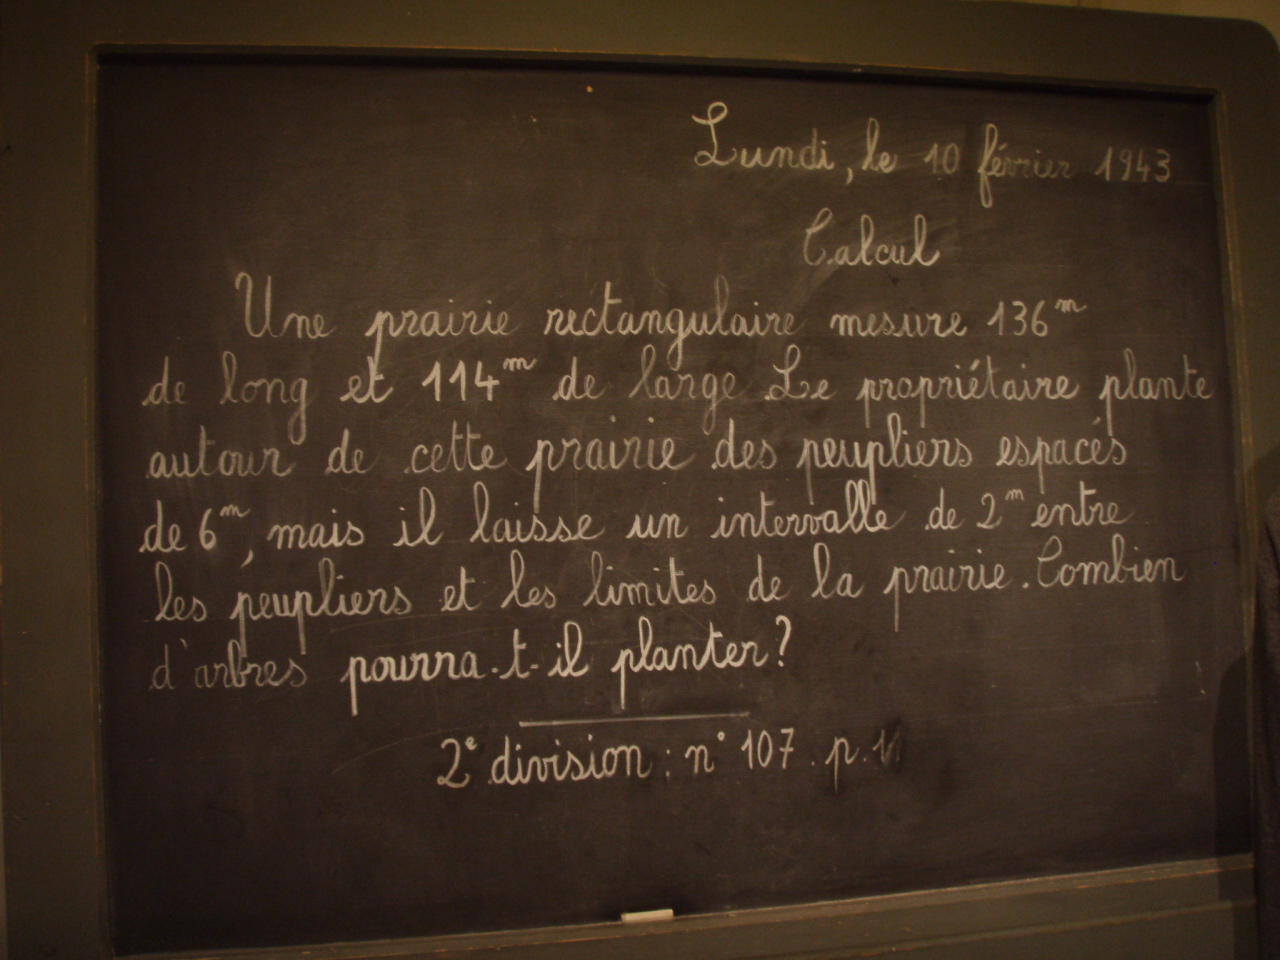 Lundi, le 10 février 1943
Calcul
Une prairie rectangulaire mesure 136ᵐ
de long et 114ᵐ de large. Le propriétaire plante
autour de cette prairie des peupliers espacés
de 6ᵐ, mais il laisse un intervalle de 2ᵐ entre
les peupliers et les limites de la prairie. Combien
d'arbres pourra-t-il planter?
2ᵉ division : n° 107. p.